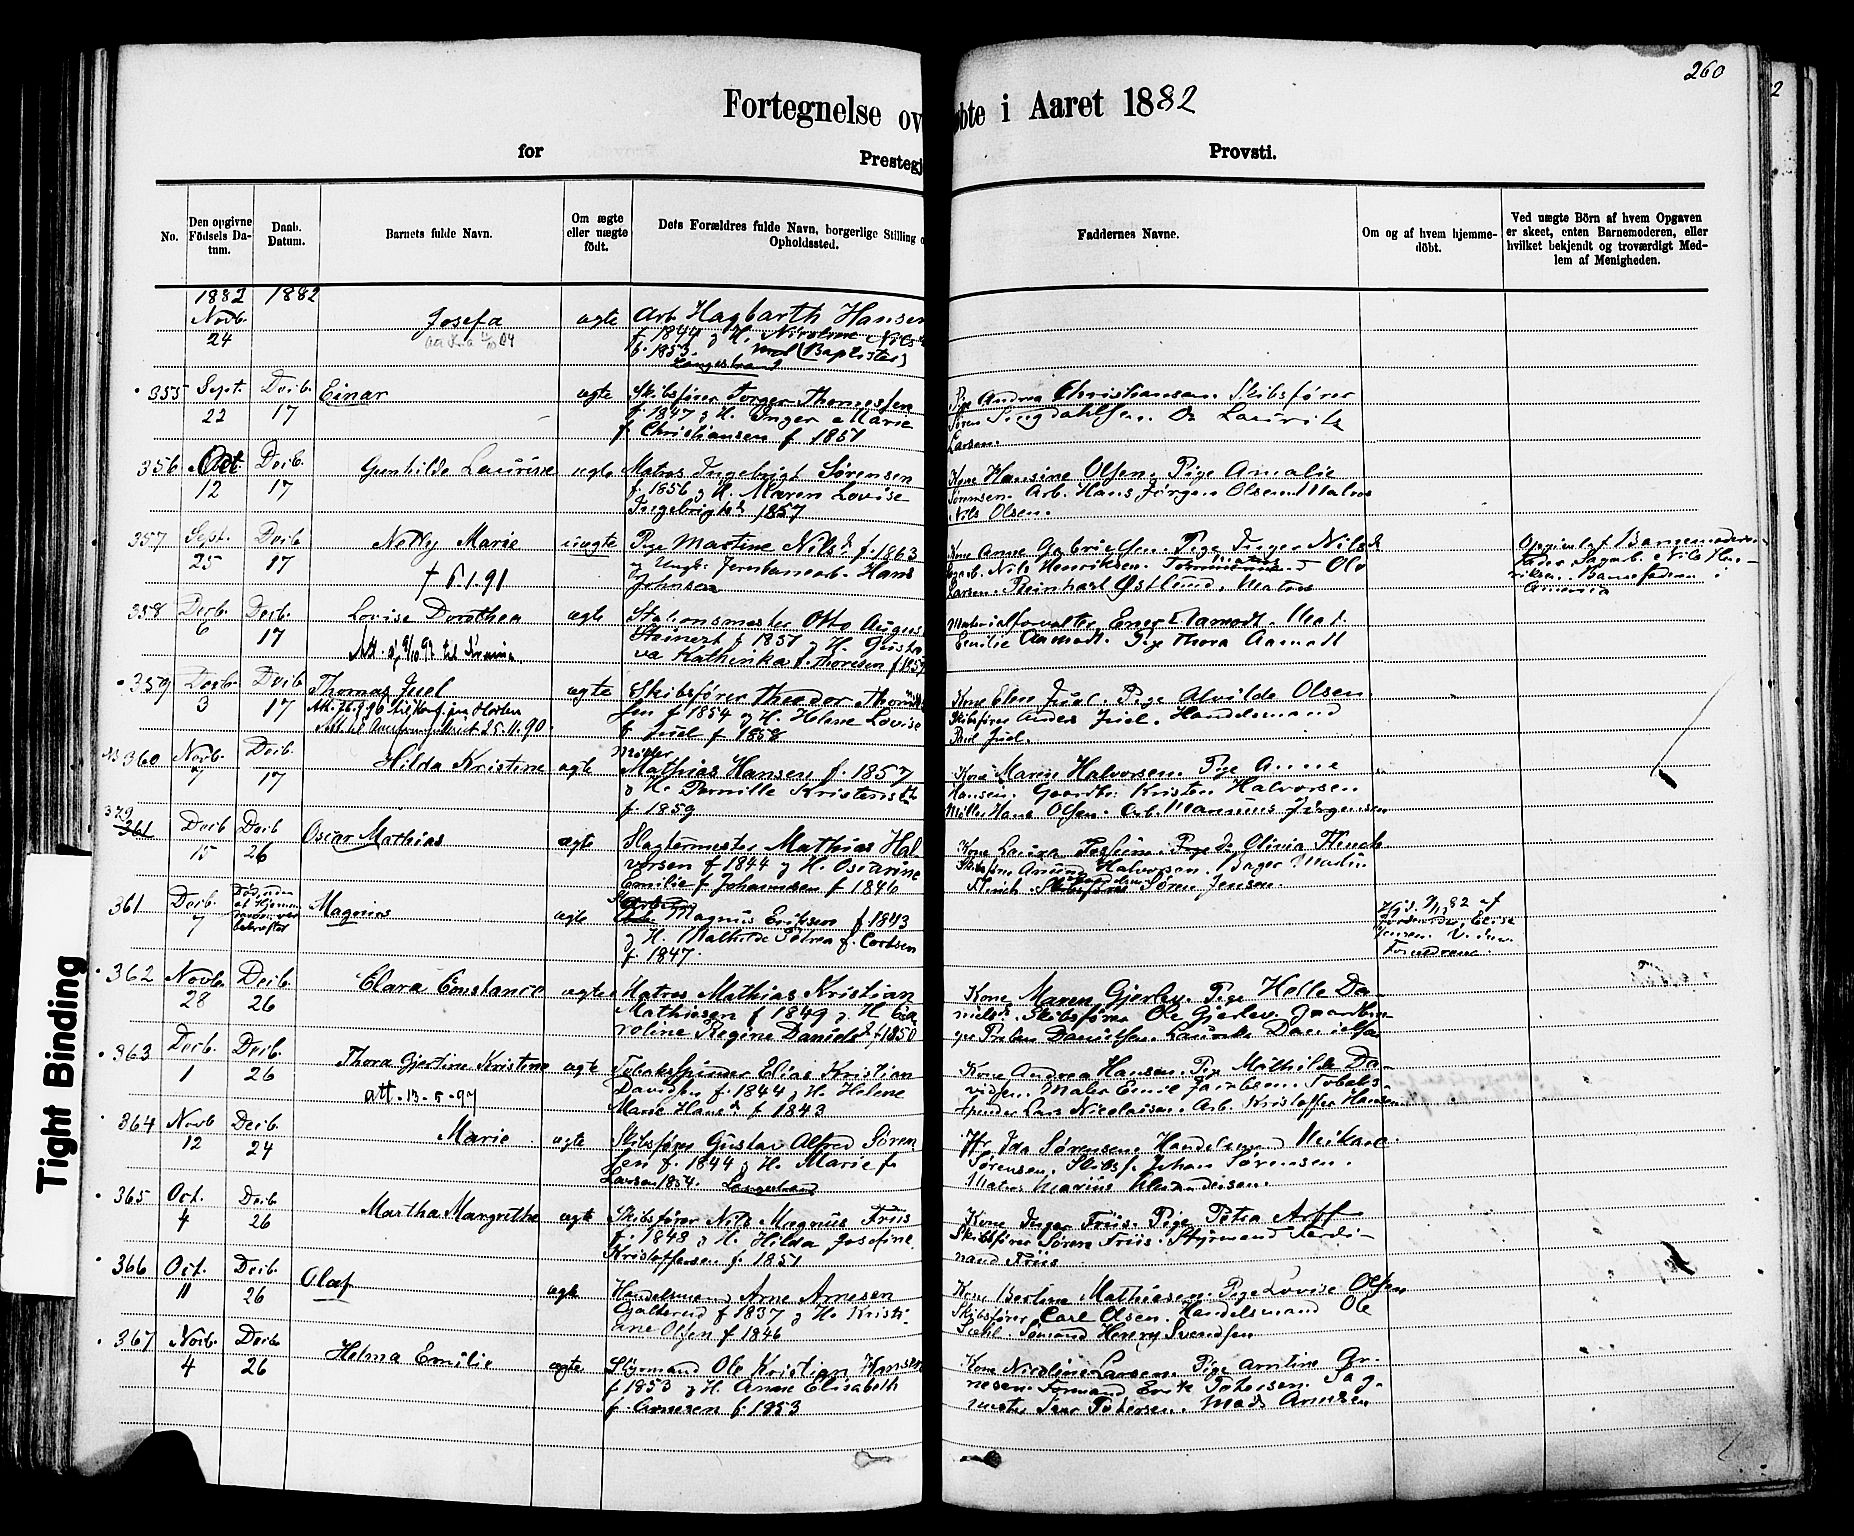 260
Fortegnelse ov øbte i Aaret 1882
for Prestegj Provsti.
No.
Den opgivne Födsels Datum.
Daab. Datum.
Barnets fulde Navn.
Om ægte eller uægte födt.
Dets Forældres fulde Navn, borgerlige Stilling o Opholdssted.
Faddernes Navne.
Om og af hvem hjemmedöbt.
Ved uægte Börn af hvem Opgaven er skeet, enten Barnemoderen, eller hvilket bekjendt og troværdigt Medlem af Menigheden.
1882 1882
Novb. 24 Josefa ægte Arb. Hagbarth Hansen
f. 1844 & H. Nils
f. 1853. (Baptister)
Langestrand
355 Sept. 22 Decb. 17 Einar ægte Skibsfører Torger Thomessen
f. 1847 & H. Inger Marie
f. Christiansen f. 1851
Pige Andrea Christiansen. Skibsfører
Søren Laurits
Larsen.
356 Oct 12 Decb. 17 Gunhilda Laurine ægte Matros Ingebrigt Sørensen
f. 1856 & H. Maren Lovise
Ingebrigtsd. 1857
Kone Hansine Olsen. Pige Amalie
Sørensen. Arb. Hans Jørgen Olsen. Matros
Nils Olsen.
357 Sept. 25 Decb 17 Nelly Marie uægte Pige Martine Nilsd. f. 1863
† 6.1.91
& Ungk. Jernbanearb. Hans
Johnsen
Kone Anne Gabrielsen. Pige Inger Nilsd
Sagarb. Nils Henriksen.
Larsen. Reinhart Østlund. Matros
Opgivet af Barnemoderens
Fader Sagarb. Nils Henriksen. Barnefaderen i
Amerika
358 Decb. 6 Decb. 17 Lovise Dorothea ægte Stationsmester Otto August
Steinert f. 1851 & H. Gusta
va Kathinka f. Thoresen f. 1857
Materialforvalter Ener Aamodt. Mad.
Emilie Aamodt. Pige Thora Aamodt
359 Decb. 3 Decb 17 Thomas Juel ægte Skibsfører Theodor Thomes
sen f. 1854 & H. Helene Lovise
f. Juel f. 1858
Kone Elen Juel. Pige Alvilde Olsen
Skibsfører Anders Juel. Handelsmand
Paul Juel.
360 Novb. 7 Decb. 17 Hilda Kristine ægte Møller
Mathias Hansen f. 1857
& H. Pernille Kristensd.
f. 1859
Kone Maren Halvorsen. Pige Anne
Hansen. Gaardbr. Kristen Halvorsen
Møller Hans Olsen. Arb. Marinus Jørgensen
379
361 Decb 15 Decb 26 Oscar Mathias ægte Slagtermester Mathias Hal
vorsen f. 1844 & H. Oscarine
Emilie f. Johannesen f. 1846
Kone Laura Pige do Olivia
Skibsfører Halvorsen. Bager
Skibsfører Søren Jensen.
361 Decb. 7 Magnus ægte
Magnus Eriksen f. 1843
& H. Mathilde Petrea f. Corbsen
f. 1847.
af
Forældrene.
362 Novb. 28 Decb. 26 Clara Constance ægte Matros Mathias Kristian
Mathiesen f. 1849 & H. Ca
roline Regine Danielsd. f. 1850
Kone Maren Gjerløv. Pige Helle Da-
nielsd. Skibsfører Ole Gjerløv. Gaardbru-
ger Preben Danielsen. Laurits Danielsen
363 Decb. 1 Decb. 26 Thora Gjertine Kristine ægte Tobakspinder Elias Kristian
att. 13-5-97
Davidsen f. 1844 & H. Helene
Marie Hansd. f. 1843
Kone Andrea Hansen. Pige Mathilde Da-
vidsen. Maler Emil Jacobsen. Tobaks-
spinder Lars Nicolaisen. Arb. Kristoffer Hansen
364 Novb 12 Decb. 24 Marie ægte Skibsfører Gustav Alfred Søren
sen f. 1844 & H. Marie f.
Larsen 1854. Langestrand
Fr. Ida Sørensen. Handelsmand Mikael
Sørensen. Skibsf. Johan Sørensen.
Matros Marius
365 Oct. 4 Decb 26 Martha Margrethe ægte Skibsfører Nils Magnus Friis
f. 1848 & H. Hilda Josefine
Kristoffersen f. 1851
Kone Inger Friis. Pige Petra Arff
Skibsfører Søren Friis. Styrmand Ferdi-
nand Friis
366 Oct. 11 Decb. 26 Olaf ægte Handelsmand Arne Arnesen
Galterud f. 1837 & H. Kristi-
ane Olsen f. 1846
Kone Bertine Mathiesen. Pige Lovise Olsen
Skibsfører Carl Olsen. Handelsmand Ole
Sømand Henry Svendsen
367 Novb. 4 Decb 26 Helma Emilie ægte Styrmand Ole Kristian Hansen
f. 1853 & H. Anne Elisabeth
f. Arnesen f. 1853
Kone Nicoline Larsen. Pige Arntine Ar-
nesen. Formand Erik Petersen. Sag-
mester Iver Petersen. Mads Arnesen
Tight Binding